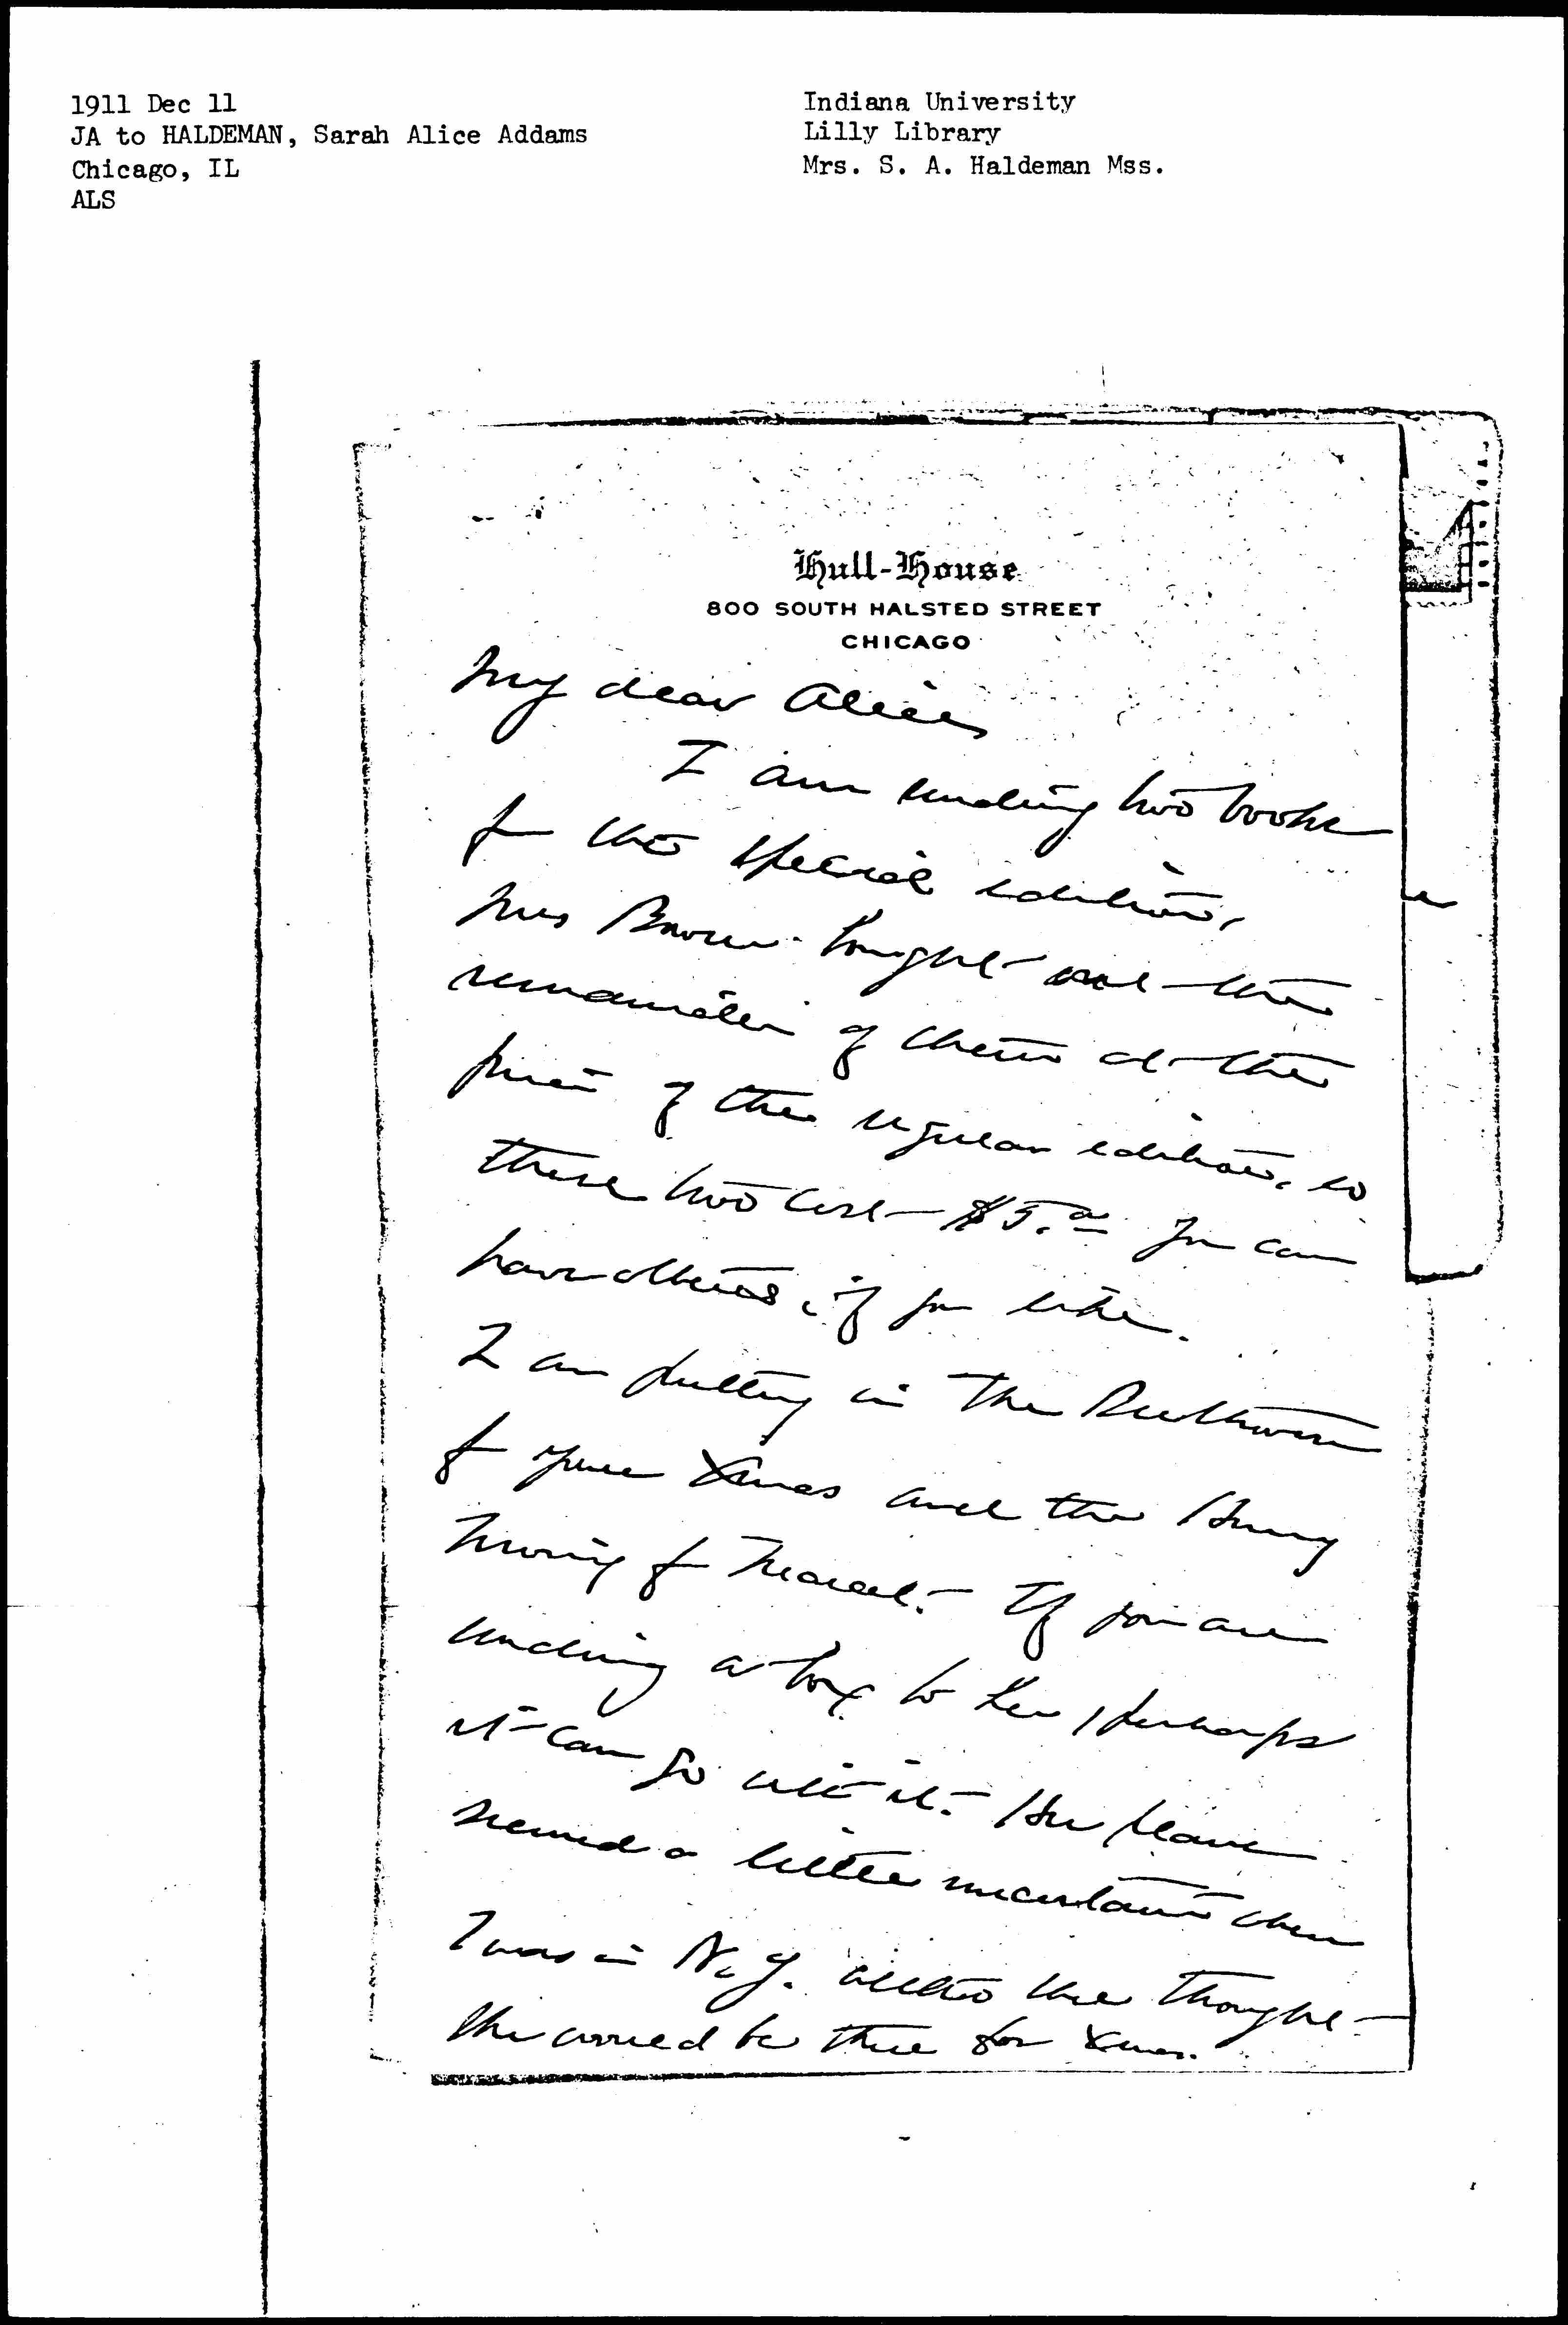 1911 Dec 11
JA to HALDEMAN, Sarah Alice Addams
Chicago, IL
ALS
Indiana University
Lilly Library
Mrs. S. A. Haldeman Mss.
Hull-House
800 SOUTH HALSTED STREET
CHICAGO
My dear Alice
I am sending two books
of the special edition,
Mrs Bowen bought out the
remainder of them at the
price of the regular edition, so
these two cost $5.00 You can
have others, if you like.
I am putting in the Beethoven
for your Xmas and the
for Marcet. If you are
sending a box to her, perhaps
it can go with it. Her plans
seemed a little uncertain when
I was in N.Y. altho she thought
she would be there for Xmas.